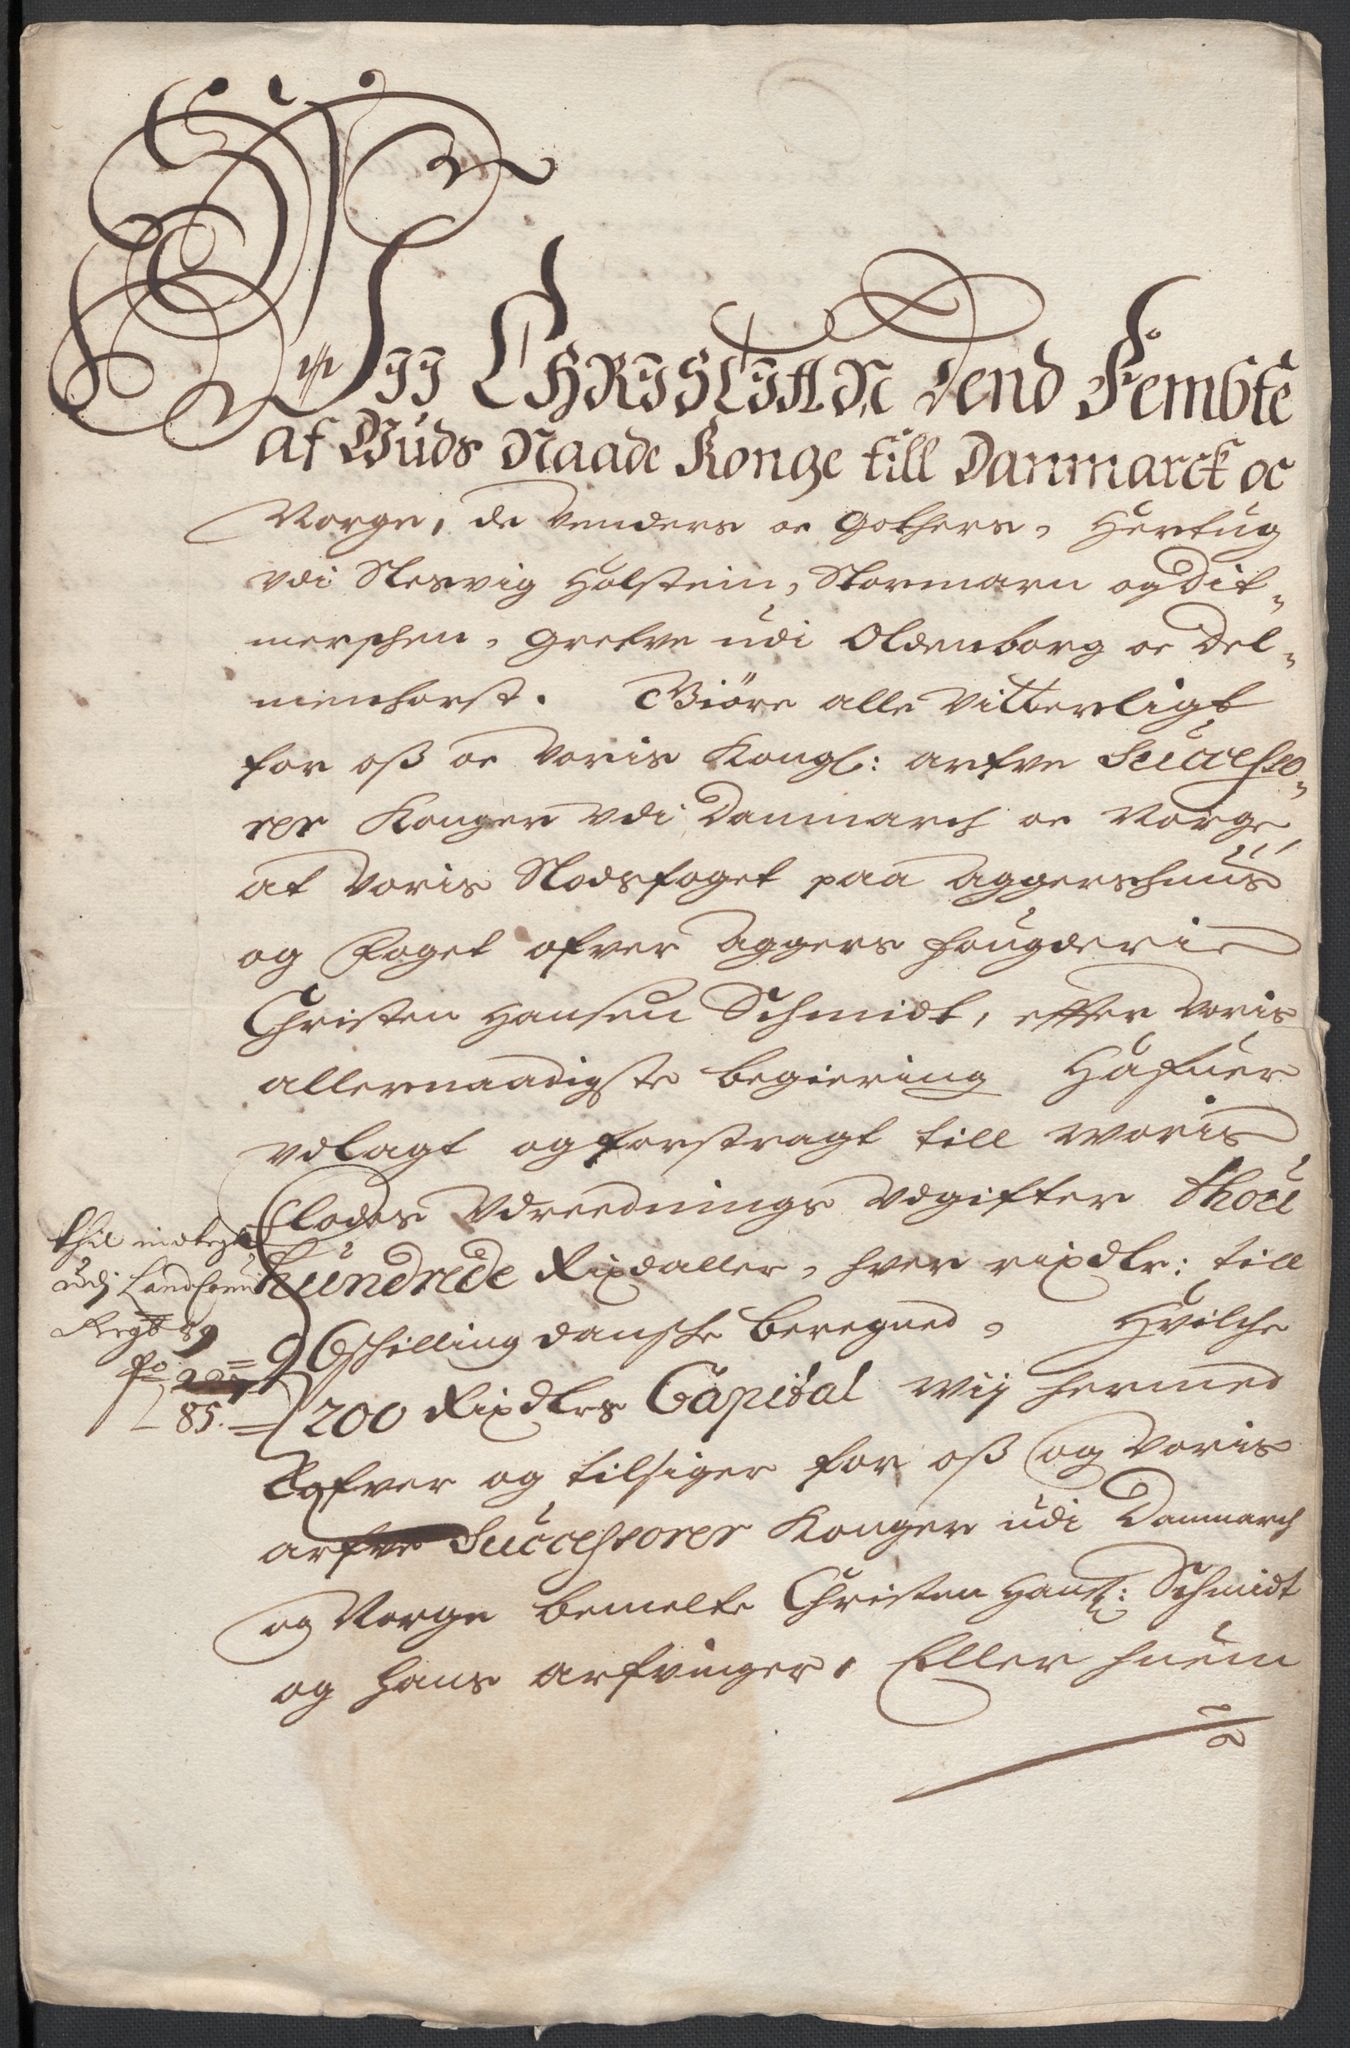 Wij CHRISTIAN Dend Fembte
af Guds Naade Konge till Danmarck oc
Norge, de Venders oc Gothers, Hertug
vdi Slesvig Holstein, Stormarn og Dit-
merschen, Grefve udi Oldenborg oc Del-
menhorst. Giöre alle Vitterligt
for oss oc Voris Kongl: arfve Successo-
rer Konger vdi Danmarch oc Norge,
at Voris Slodsfoget paa Aggerschuus
og Foget ofver Aggers fougderie
Christen Hansen Schmidt, effter Voris
allernaadigste begiering Hafuer
vdlagt og forstragt till Woris
Flodes Vdreednings Vdgifter Thou
hundrede Rixdaller, hver rixdlr: till
96 schilling danske beregned, Hvilche
200 Rixdlrs Capital wij hermed
Lofver og tilsiger for oss og Voris
arfve Successorer Konger udi Danmarch
og Norge bemelte Christen Hanss: Schmidt
og hans arfvinger, Eller huem
udj
Regsb 89
fo
85.